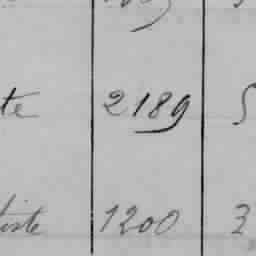 te 2189 5
iste 1200 3